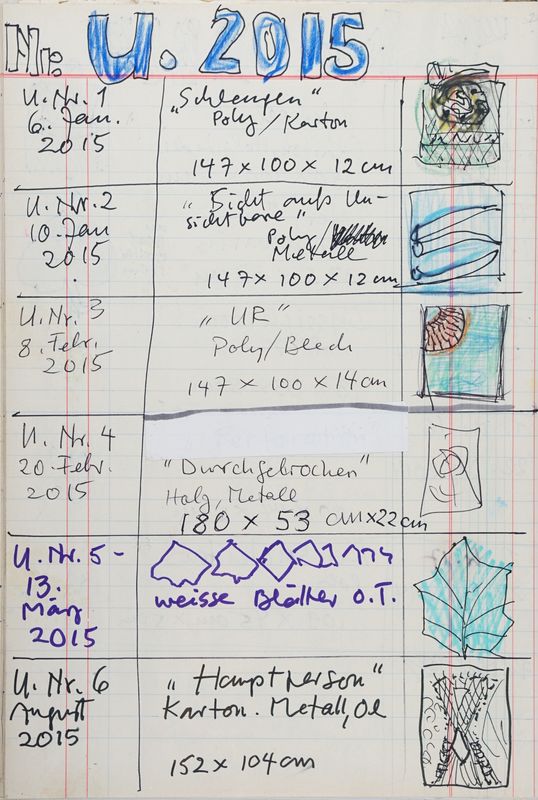 Nr: U. 2015
U. Nr. 1
6. Jan.
2015
„Schlangen“
Poly/Karton
147 x 100 x 12 cm
U. Nr. 2
10. Jan
2015
„Sicht aufs Un-
sichtbare“
Poly/
Metall
147 x 100 x 12 cm
U. Nr. 3
8. Febr.
2015
„UR“
Poly/Blech
147 x 100 x 14 cm
U. Nr. 4
20. Febr.
2015
„Durchgebrochen“
Holz, Metall
180 x 53 cm x 22 cm
U. Nr. 5 -
13.
März
2015
weisse Blätter O.T.
U. Nr. 6
August
2015
„Hauptperson“
Karton. Metall, Oel
152 x 104 cm